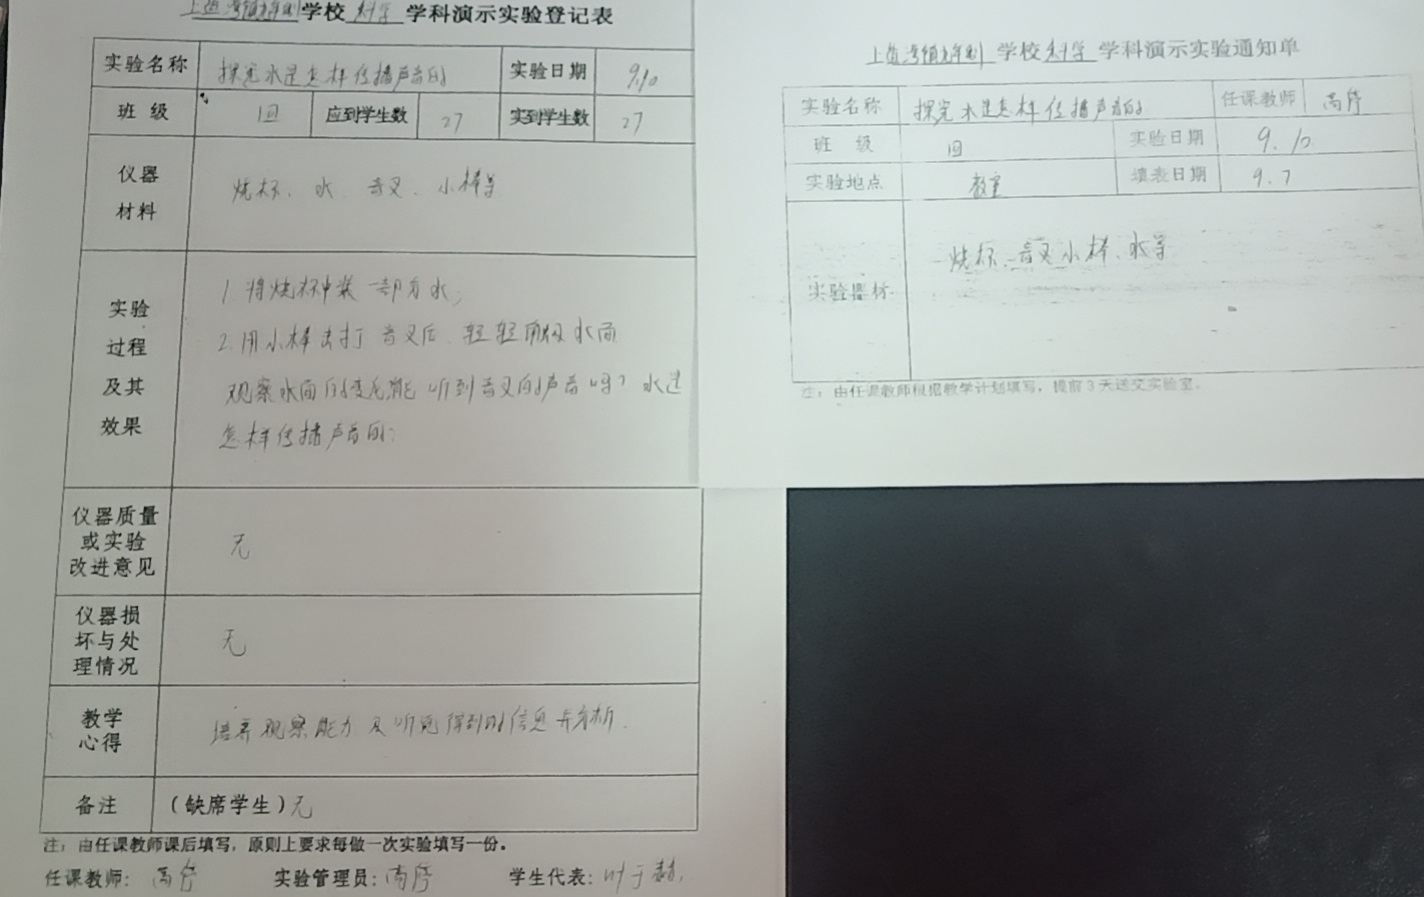 学校 科学 学科演示实验登记表
实验名称 探究水是怎样传播声音的 实验日期 9.10
班 级 四 应到学生数 27 实到学生数 27
仪器
材料
烧杯、水、音叉、小棒等
实验
过程
及其
效果
1 将烧杯中装一部分水;
2.用小棒击打音叉后.轻轻触及水面
观察水面的变化,能听到音叉的声音吗?水是
怎样传播声音的;
仪器质量
或实验
改进意见
无
仪器损
坏与处
理情况
无
教学
心得
培养观察能力及听觉得到的信息并分析.
备注 (缺席学生)无
注:由任课教师课后填写,原则上要求每做一次实验填写一份。
任课教师: 高 实验管理员: 学生代表: 叶子
学校 科学 学科演示实验通知单
实验名称 探究水是怎样传播声音的 任课教师 高
班 级 四 实验日期 9.10
实验地点 教室 填表日期 9.7
实验器材 烧杯、音叉小棒、水等
注:由任课教师根据教学计划填写,提前3天送交实验室。